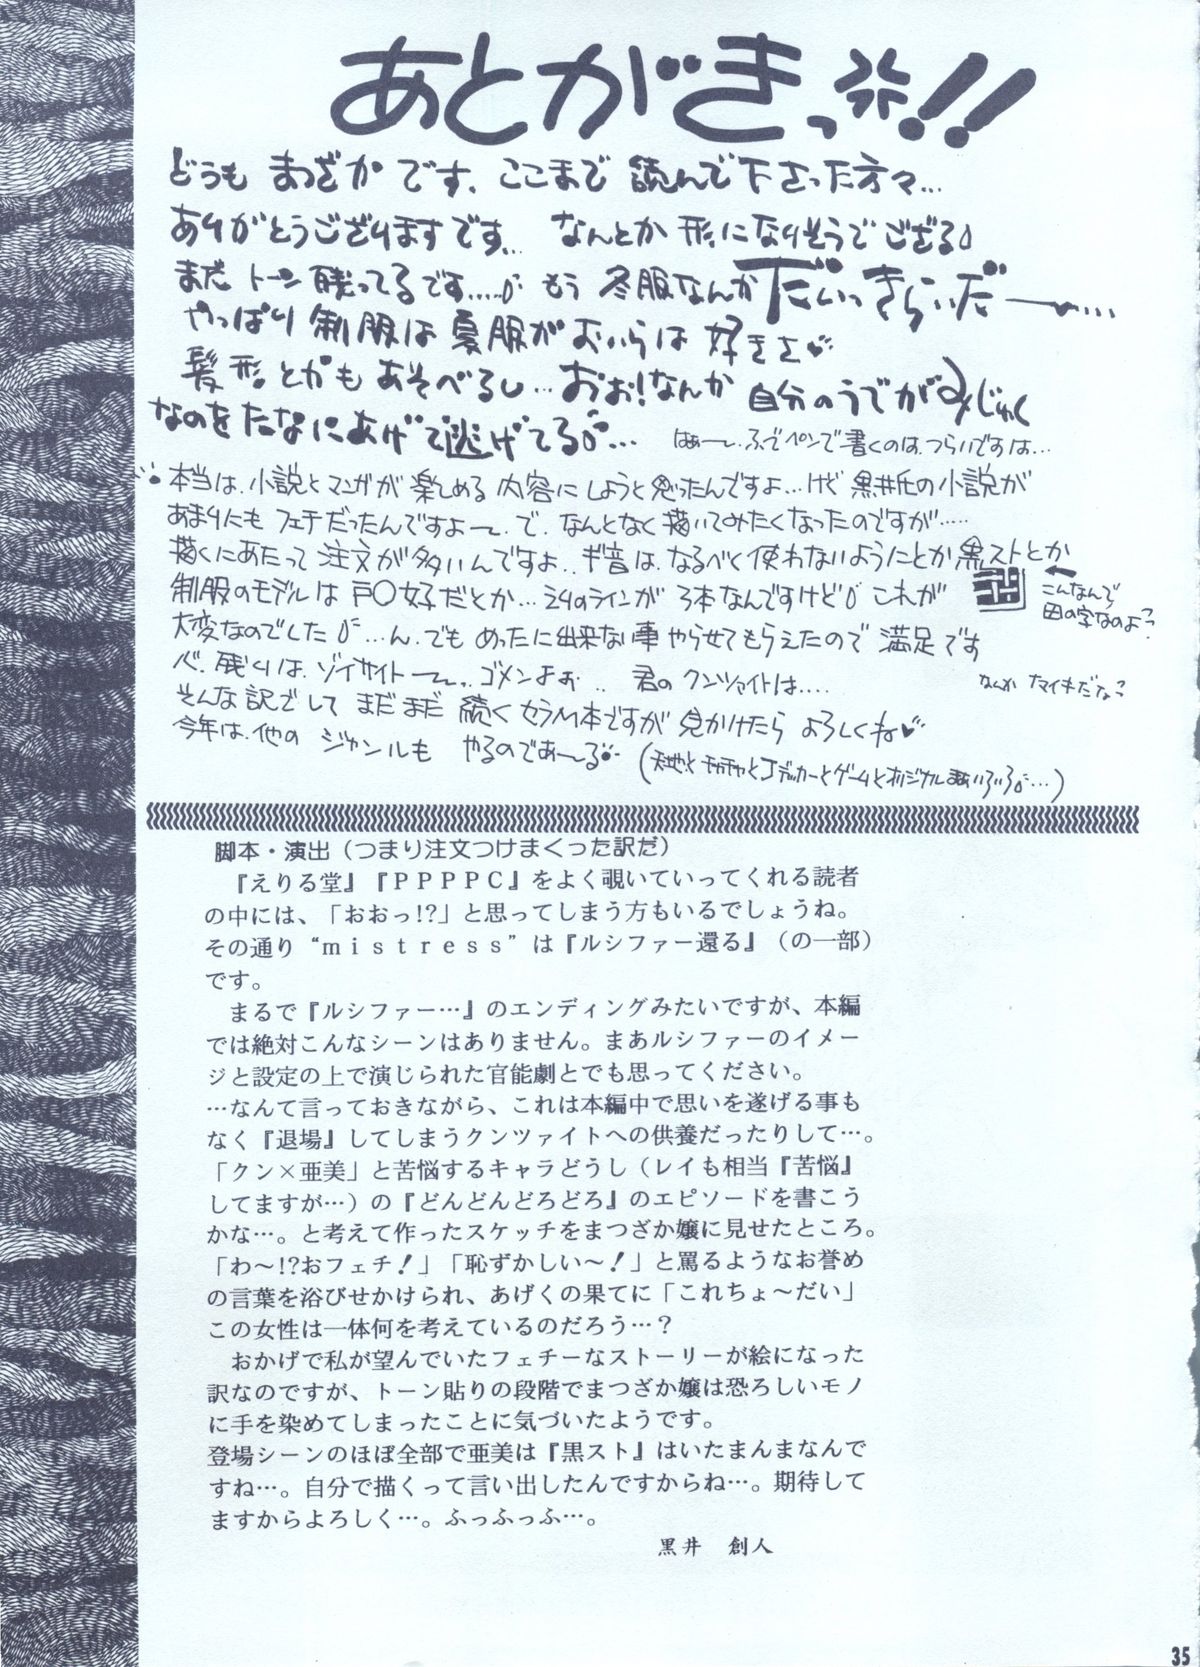 あとがきっ!!
どうも まつざか です. ここまで 読んで下さった方々…
ありがとうございますです… なんとか 形になりそうでござる
まだ トーン 残ってるです…… もう 冬服なんか だいっきらいだー〜……
やっぱり 制服は 夏服が おいらは 好きさ♥
髪形とかも あそべるし… おぉ!なんか 自分のうでが みじゅく
なのを たなにあげて逃げてる…
はぁ〜. ふでペンで書くのは、つらいですは…
本当は、小説とマンガが 楽しめる 内容に しようと 思ったんですよ…けど 黒井氏の小説が
あまりにも フェチだったんですよ〜. で. なんとなく 描いてみたくなったのですが……
描くにあたって 注文が多いんですよ. ギ音は、なるべく 使わないようにとか 黒ストとか
制服のモデルは 戸○女子だとか… えりのラインが 3本なんですけど これが
こんなんで
田の字なのよ?
大変なのでした …ん. でも めったに出来ない事 やらせてもらえたので 満足です
心. 残りは. ゾイサイト〜… ゴメンよぉ.. 君の クンツァイトは….
なんか ナマイキだな?
そんな訳でして まだまだ 続く セラM本ですが 見かけたら よろしくね♥
今年は、他の ジャンルも やるのであ〜る
(天地と チャチャと Jデッカーと ゲームと オリジナル まあいろいろ…)
脚本・演出(つまり注文つけまくった訳だ)
『えりる堂』『PPPPC』をよく覗いていってくれる読者
の中には、「おおっ!?」と思ってしまう方もいるでしょうね。
その通り“mistress”は『ルシファー還る』(の一部)
です。
まるで『ルシファー…』のエンディングみたいですが、本編
では絶対こんなシーンはありません。まあルシファーのイメー
ジと設定の上で演じられた官能劇とでも思ってください。
…なんて言っておきながら、これは本編中で思いを遂げる事も
なく『退場』してしまうクンツァイトへの供養だったりして…。
「クン×亜美」と苦悩するキャラどうし(レイも相当『苦悩』
してますが…)の『どんどんどろどろ』のエピソードを書こう
かな…。と考えて作ったスケッチをまつざか嬢に見せたところ。
「わ〜!?おフェチ!」「恥ずかしい〜!」と罵るようなお誉め
の言葉を浴びせかけられ、あげくの果てに「これちょ〜だい」
この女性は一体何を考えているのだろう…?
おかげで私が望んでいたフェチーなストーリーが絵になった
訳なのですが、トーン貼りの段階でまつざか嬢は恐ろしいモノ
に手を染めてしまったことに気づいたようです。
登場シーンのほぼ全部で亜美は『黒スト』はいたまんまなんで
すね…。自分で描くって言い出したんですからね…。期待して
ますからよろしく…。ふっふっふ…。
黒井 創人
35